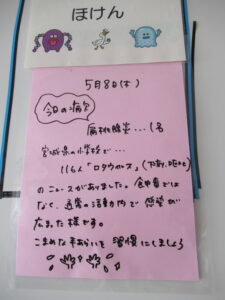 ほけん
5月8日(木)
今日の病欠
扁桃腺炎...1名
宮城県の小学校で...
116人「ロタウイルス」(下痢、嘔吐)
のニュースがありました。食中毒では
なく、通常の活動内で感染が
広まった様です。
こまめな手あらいを習慣にしましょう